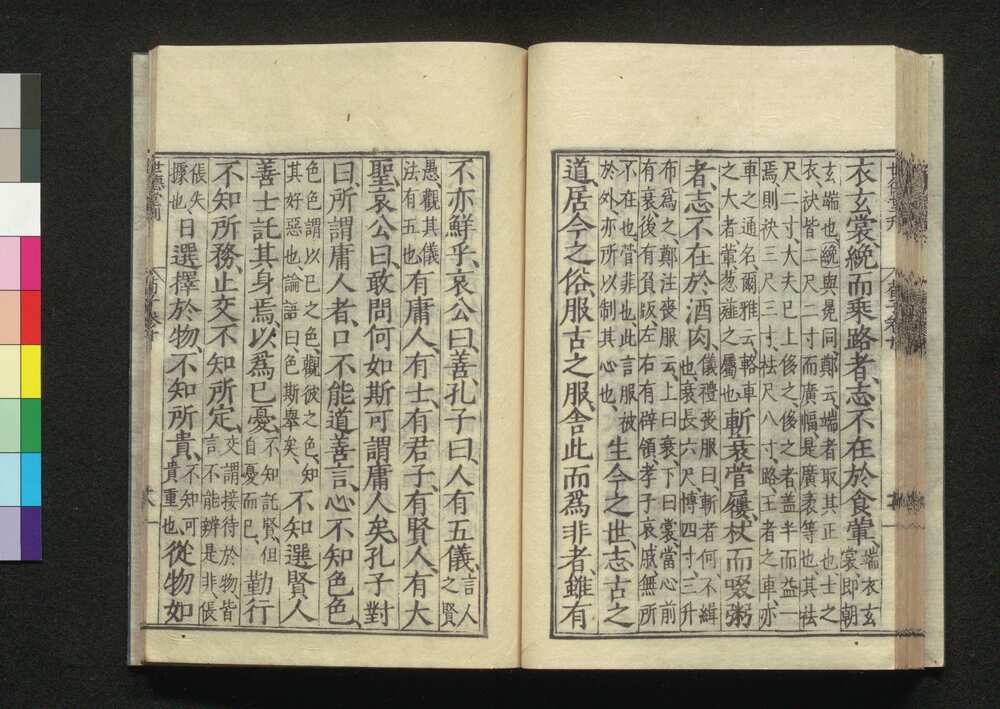 衣玄裳絻而乘路者、志不在於食葷、端衣玄
裳即朝
玄端也、絻與冕同、鄭云、端者取其正也、士之
衣、袂皆二尺二寸而廣幅、是廣袤等也、其袪
尺二寸、大夫已上侈之、侈之者蓋半而益一
焉、則袂三尺三寸、袪尺八寸、路、王者之車、亦
車之通名、爾雅云、輅車
之大者葷葱薤之屬也
斬衰菅屨、杖而啜粥
者、志不在於酒肉、儀禮喪服曰斬者何不緝
也、衰長六尺、博四寸、三升
布爲之、鄭注喪服云、上曰衰、下曰裳、當心前
有衰後有負版左右有辟領孝子哀戚無所
不在也、菅菲也、此言服被
於外、亦所以制其心也、
生今之世志古之
道、居今之俗、服古之服、舍此而爲非者、雖有
不亦鮮乎、哀公曰、善、孔子曰、人有五儀、言人
之賢
愚觀其儀
法有五也
有庸人、有士、有君子、有賢人、有大
聖、哀公曰、敢問何如斯可謂庸人矣、孔子對
曰、所謂庸人者、口不能道善言、心不知色色、
色色謂以己之色觀彼之色、知
其好惡也、論語曰色斯舉矣
不知選賢人
善士託其身焉、以爲己憂、不知託賢、但
自憂而已、
勤行
不知所務、止交不知所定、交謂接待於物、皆
言不能辨是非、倀
倀失
據也、
日選擇於物、不知所貴、不知可
貴重也、
從物如